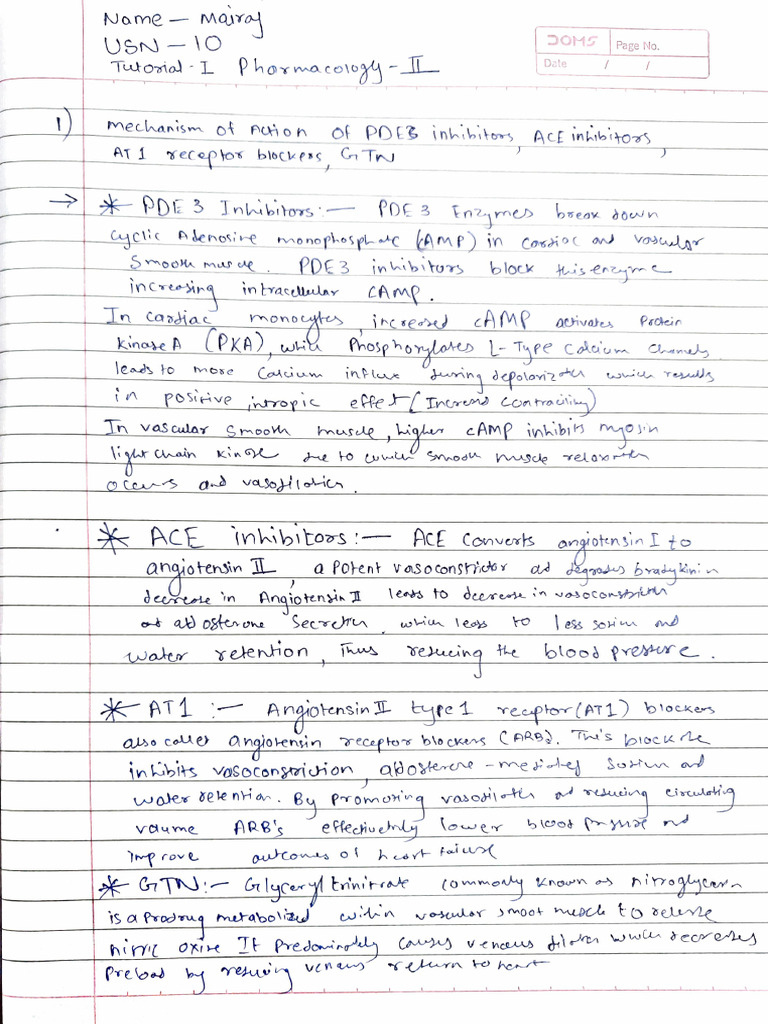 Name – Mairaj
USN – 10
Tutorial - I Pharmacology - II
DOMS Page No.
Date / /
1) Mechanism of Action of PDE3 inhibitors, ACE inhibitors,
AT1 receptor blockers, GTN
→ * PDE 3 Inhibitors :— PDE 3 Enzymes break down
cyclic Adenosine monophosphate (cAMP) in cardiac and vascular
Smooth muscle. PDE3 inhibitors block this enzyme
increasing intracellular cAMP.
In cardiac monocytes, increased cAMP activates Protein
kinase A (PKA), which Phosphorylates L-Type Calcium Channels
leads to more Calcium influx during depolarization which results
in positive intropic effect (Increased contractility)
In vascular smooth muscle, higher cAMP inhibits myosin
light chain kinase due to which smooth muscle relaxation
occurs and vasodilation.
* ACE inhibitors :— ACE converts angiotensin I to
angiotensin II, a potent vasoconstrictor and degrades bradykinin
decrease in Angiotensin II leads to decrease in vasoconstriction
and aldosterone secretion. which leads to less sodium and
water retention, Thus reducing the blood pressure.
* AT1 :— Angiotensin II type 1 receptor (AT1) blockers
also called angiotensin receptor blockers (ARB). This blockade
inhibits vasoconstriction, aldosterene-mediated sodium and
water retention. By promoting vasodilation and reducing circulating
volume ARB's effectively lower blood pressure and
improve outcomes of heart failure
* GTN :- Glyceryl trinitrate commonly known as nitroglycerin
is a Prodrug metabolized within vascular smoot muscle to release
nitric oxide It predominately causes venous dilation which decreases
Preload by reducing venous return to heart